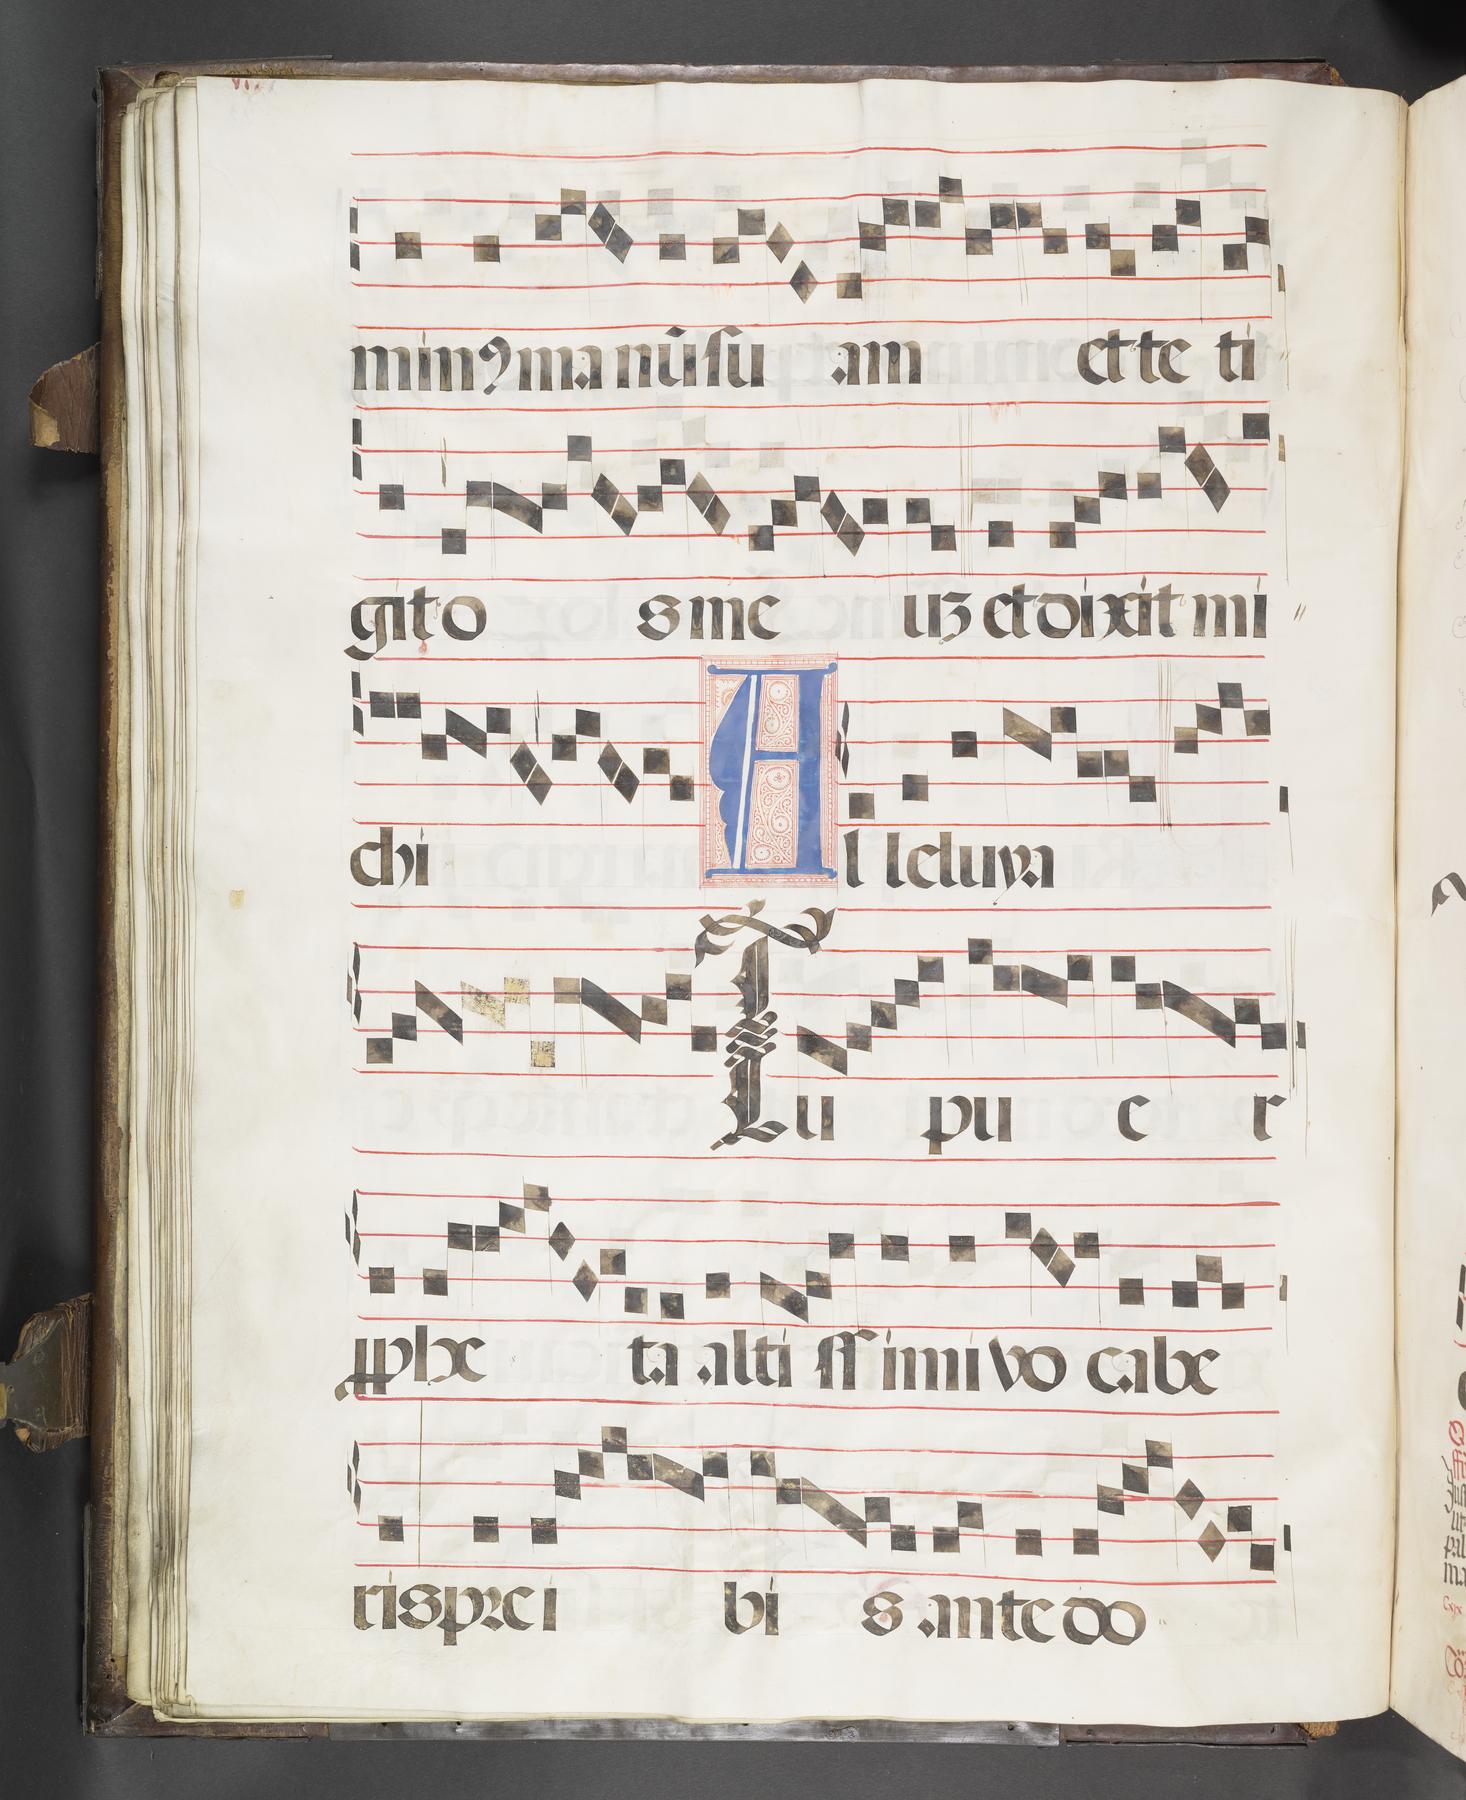 minꝯ manū su am et te ti
git o s me uʒ et dixit mi
chi Al leluya
Tu pu e r
ꝓphe ta alti ssimi vo cabe
ris prei bi s ante do